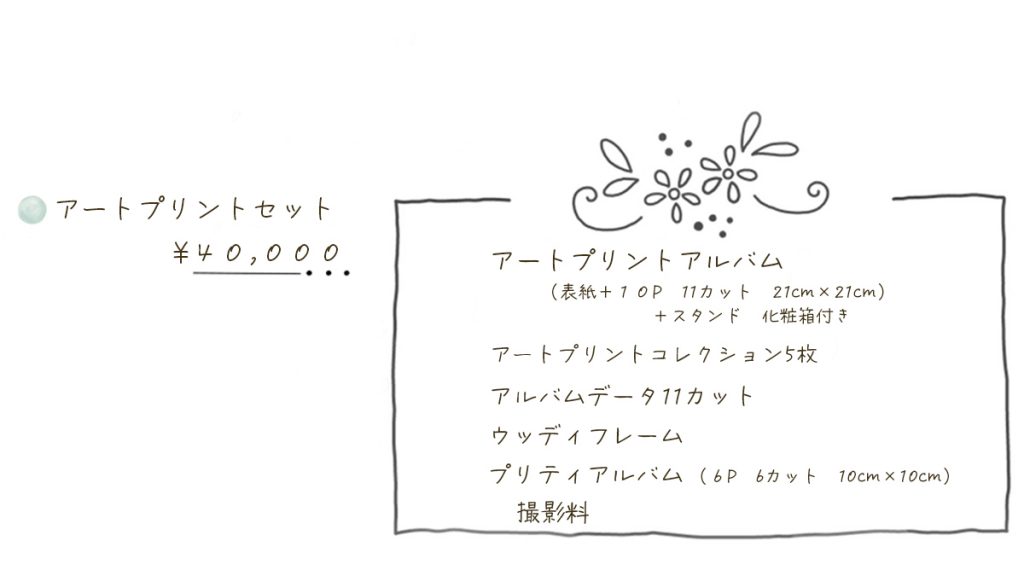 アートプリントセット
¥40,000
アートプリントアルバム
（表紙＋１０P　11カット　21cm×21cm）
＋スタンド　化粧箱付き
アートプリントコレクション5枚
アルバムデータ11カット
ウッディフレーム
プリティアルバム（6P　6カット　10cm×10cm）
撮影料